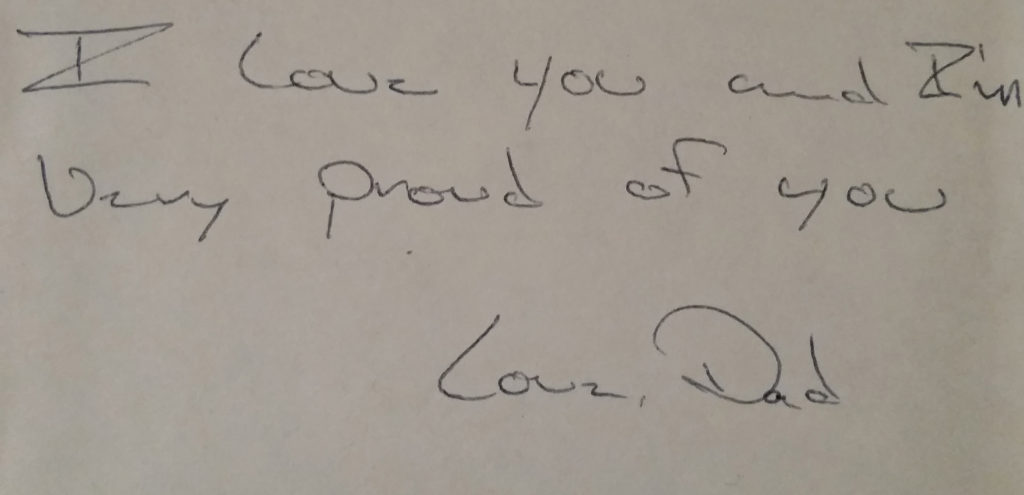 I love you and I'm
very proud of you
Love, Dad